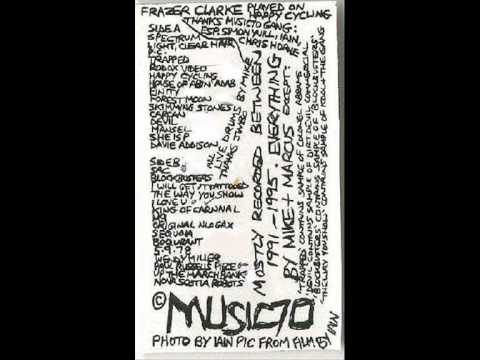 FRAZER CLARKE PLAYED ON
HAPPY CYCLING
THANKS MUSIC70 GANG:
ESP. SIMON WILL, IAIN,
CHRIS HORNE
SIDE A
SPECTRUM
LIGHT, CLEAR HAIR
P.C.
TRAPPED
RODOX VIDEO
HAPPY CYCLING
HOUSE OF ABIN'ADAB
FINITY
FOREST MOON
SKIMMING STONES
CARCAN
DEVIL
MANSEL
SHE IS P
DAVIE ADDISON
SIDE B
SAC
BLOCKBUSTERS
I WILL GET IT TATTOOED
THE WAY YOU SHOW
I LOVE U
KING OF CARNIVAL
ORIGINAL NLOGAX
SEQUOIA
BOQURANT
5.9.78
WENDY MILLER
PAUL RUSSELL'S PIECE
UP THE MARCH BANK
NOVA SCOTIA ROBOTS
ALL LIVE DRUMS BY MIKE
THANKS
MOSTLY RECORDED BETWEEN
1991-1995. EVERYTHING
BY MIKE + MARCUS EXCEPT:
"TRAPPED" CONTAINS SAMPLE OF COLONEL ABRAMS
"DEVIL" CONTAINS SAMPLE OF DIRT DEVIL COMMERCIAL
"BLOCKBUSTERS" CONTAINS SAMPLE OF "BLOCKBUSTERS"
"THE WAY YOU SHOW" CONTAINS SAMPLE OF KOOL + THE GANG
© MUSIC70
PHOTO BY IAIN PIC FROM FILM BY